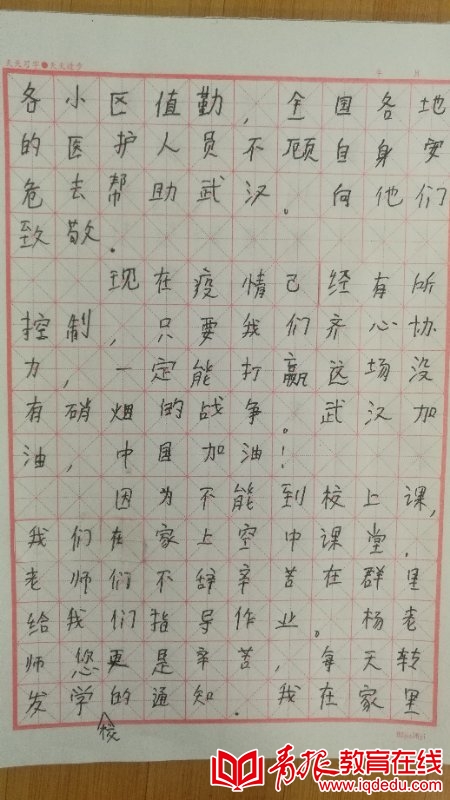 天天习字●天天进步
年 月
各小区值勤，全国各地
的医护人员不顾自身安
危去帮助武汉。向他们
致敬.
现在疫情已经有所
控制，只要我们齐心协
力，一定能打赢这场没
有硝烟的战争。武汉加
油，中国加油！
因为不能到校上课，
我们在家上空中课堂.
老师们不辞辛苦在群里
给我们指导作业。杨老
师您更是辛苦，每天转
发学的通知.我在家里
校
青报教育在线
www.iqdedu.com